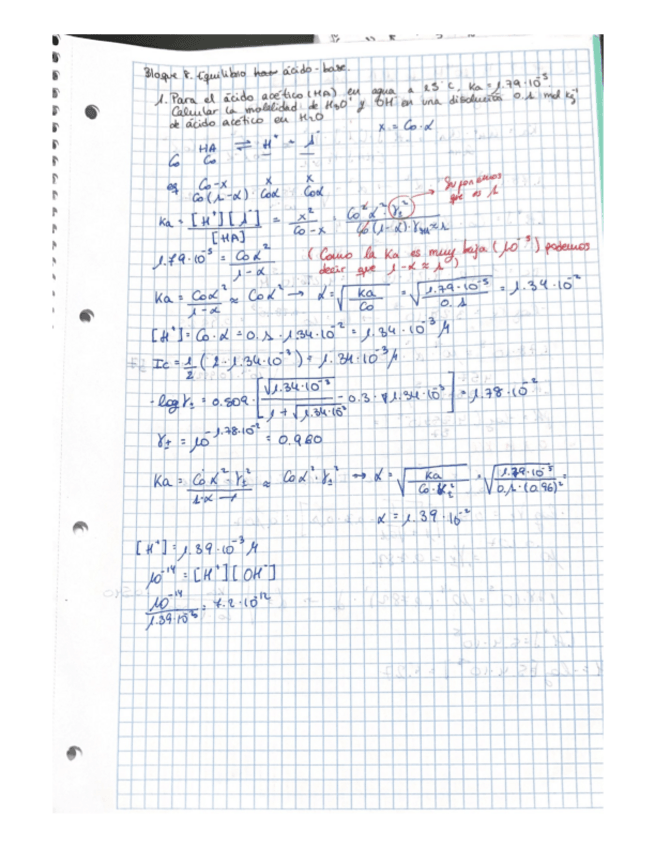 Bloque 8. Equilibrio ácido-base.
1. Para el ácido acético (HA) en agua a 25°C, Ka = 1.79·10⁻⁵
Calcular la molalidad de H₃O⁺ y OH⁻ en una disolución 0.1 mol kg⁻¹
de ácido acético en H₂O
x = Co·α
HA ⇌ H⁺ + A⁻
Co Co — —
eq Co-x x x
Co(1-α) Coα Coα
Suponemos que es 1
Ka = [H⁺][A⁻] / [HA] = x² / Co-x = Co² α²·γ±² / Co(1-α)·γHA≈1
1.79·10⁻⁵ = Coα² / 1-α
(Como la Ka es muy baja (10⁻⁵) podemos
decir que 1-α ≈ 1)
Ka = Coα² / 1-α ≈ Coα² → α = √(Ka / Co) = √(1.79·10⁻⁵ / 0.1) = 1.34·10⁻²
[H⁺] = Co·α = 0.1·1.34·10⁻² = 1.34·10⁻³ M
Ic = 1/2 (2·1.34·10⁻³) = 1.34·10⁻³ M
-logγ± = 0.509·[√1.34·10⁻³ / 1+√1.34·10⁻³ - 0.3·1.34·10⁻³] = 1.78·10⁻²
γ± = 10^-1.78·10⁻² = 0.960
Ka = Coα²·γ±² / 1-α → 1 ≈ Coα²·γ±² ↔ α = √(Ka / Co·γ±²) = √(1.79·10⁻⁵ / 0,1·(0.96)²) =
α = 1.39·10⁻²
[H⁺] = 1.39·10⁻³ M
10⁻¹⁴ = [H⁺][OH⁻]
10⁻¹⁴ / 1.39·10⁻³ = 7.2·10⁻¹²